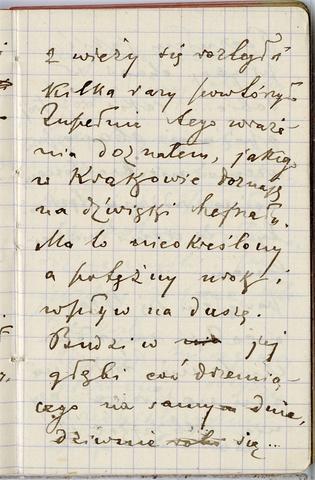 z wieży się rozległ
kilka razy powtórzył
Zupełnie tego wraże-
nia doznałem, jakiego
w Krakowie doznaję
na dźwięki hejnału.
Ma to nieokreślony
a potężny urok i
wpływ na duszę.
Budzi w jej
głębi coś drzemią-
cego na samym dnie,
dziwnie się...